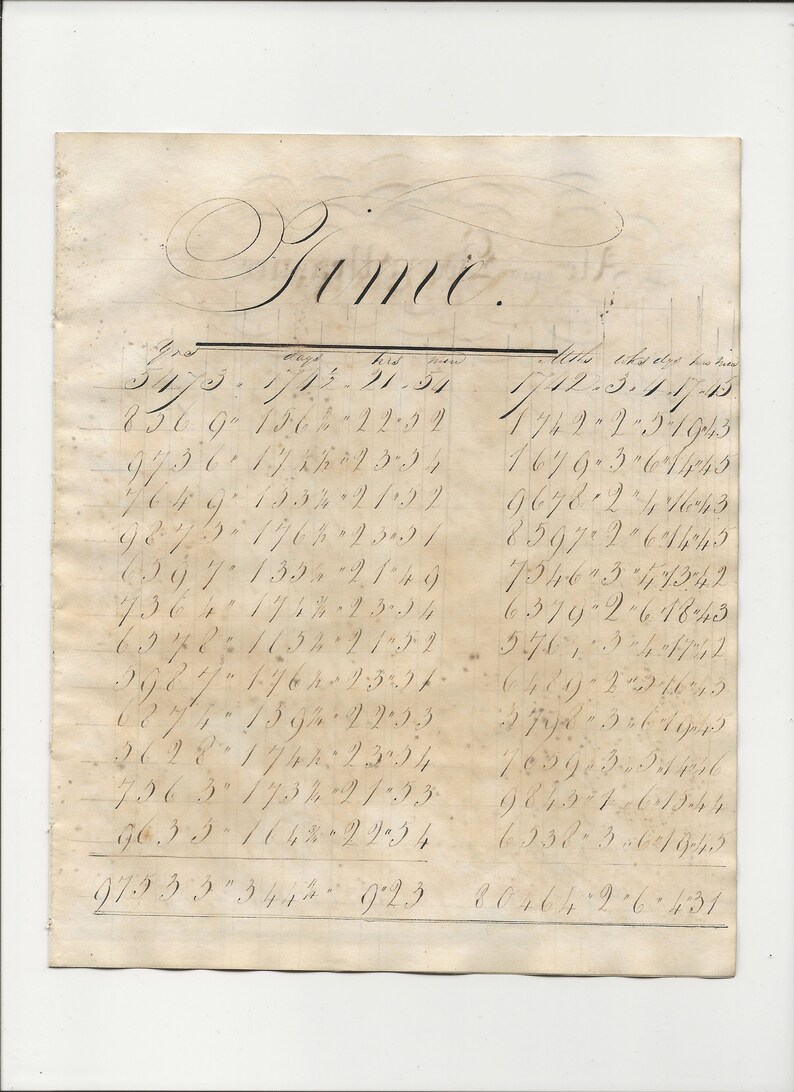 Time.
Yrs days hrs min Mths wks dys hrs min
5473 " 174½ " 21 " 54 1742 " 3 " 4 " 17 " 45
8569 " 156¾ " 22 " 52 1742 " 2 " 5 " 19 " 43
9736 " 174½ " 23 " 54 1679 " 3 " 6 " 14 " 45
7649 " 153¾ " 21 " 52 9678 " 2 " 4 " 16 " 43
9873 " 176½ " 23 " 51 8597 " 2 " 6 " 14 " 45
6597 " 135½ " 21 " 49 7546 " 3 " 4 " 13 " 42
7364 " 174¾ " 23 " 54 6379 " 2 " 6 " 18 " 43
6578 " 21 " 52 3 " 4 " 17 " 42
5987 " 176½ " 23 " 51 6489 " 2 " 5 " 16 " 43
6874 " 159¾ " 22 " 53 5798 " 3 " 6 " 19 " 45
5628 " 174½ " 23 " 54 7659 " 3 " 5 " 14 " 46
7563 " 173¼ " 21 " 53 9843 " 6 " 15 " 44
9635 " 164¾ " 22 " 54 6538 " 3 " 6 " 19 " 45
97533 " 344¼ " 9 " 23 80464 " 2 " 6 " 4 " 31